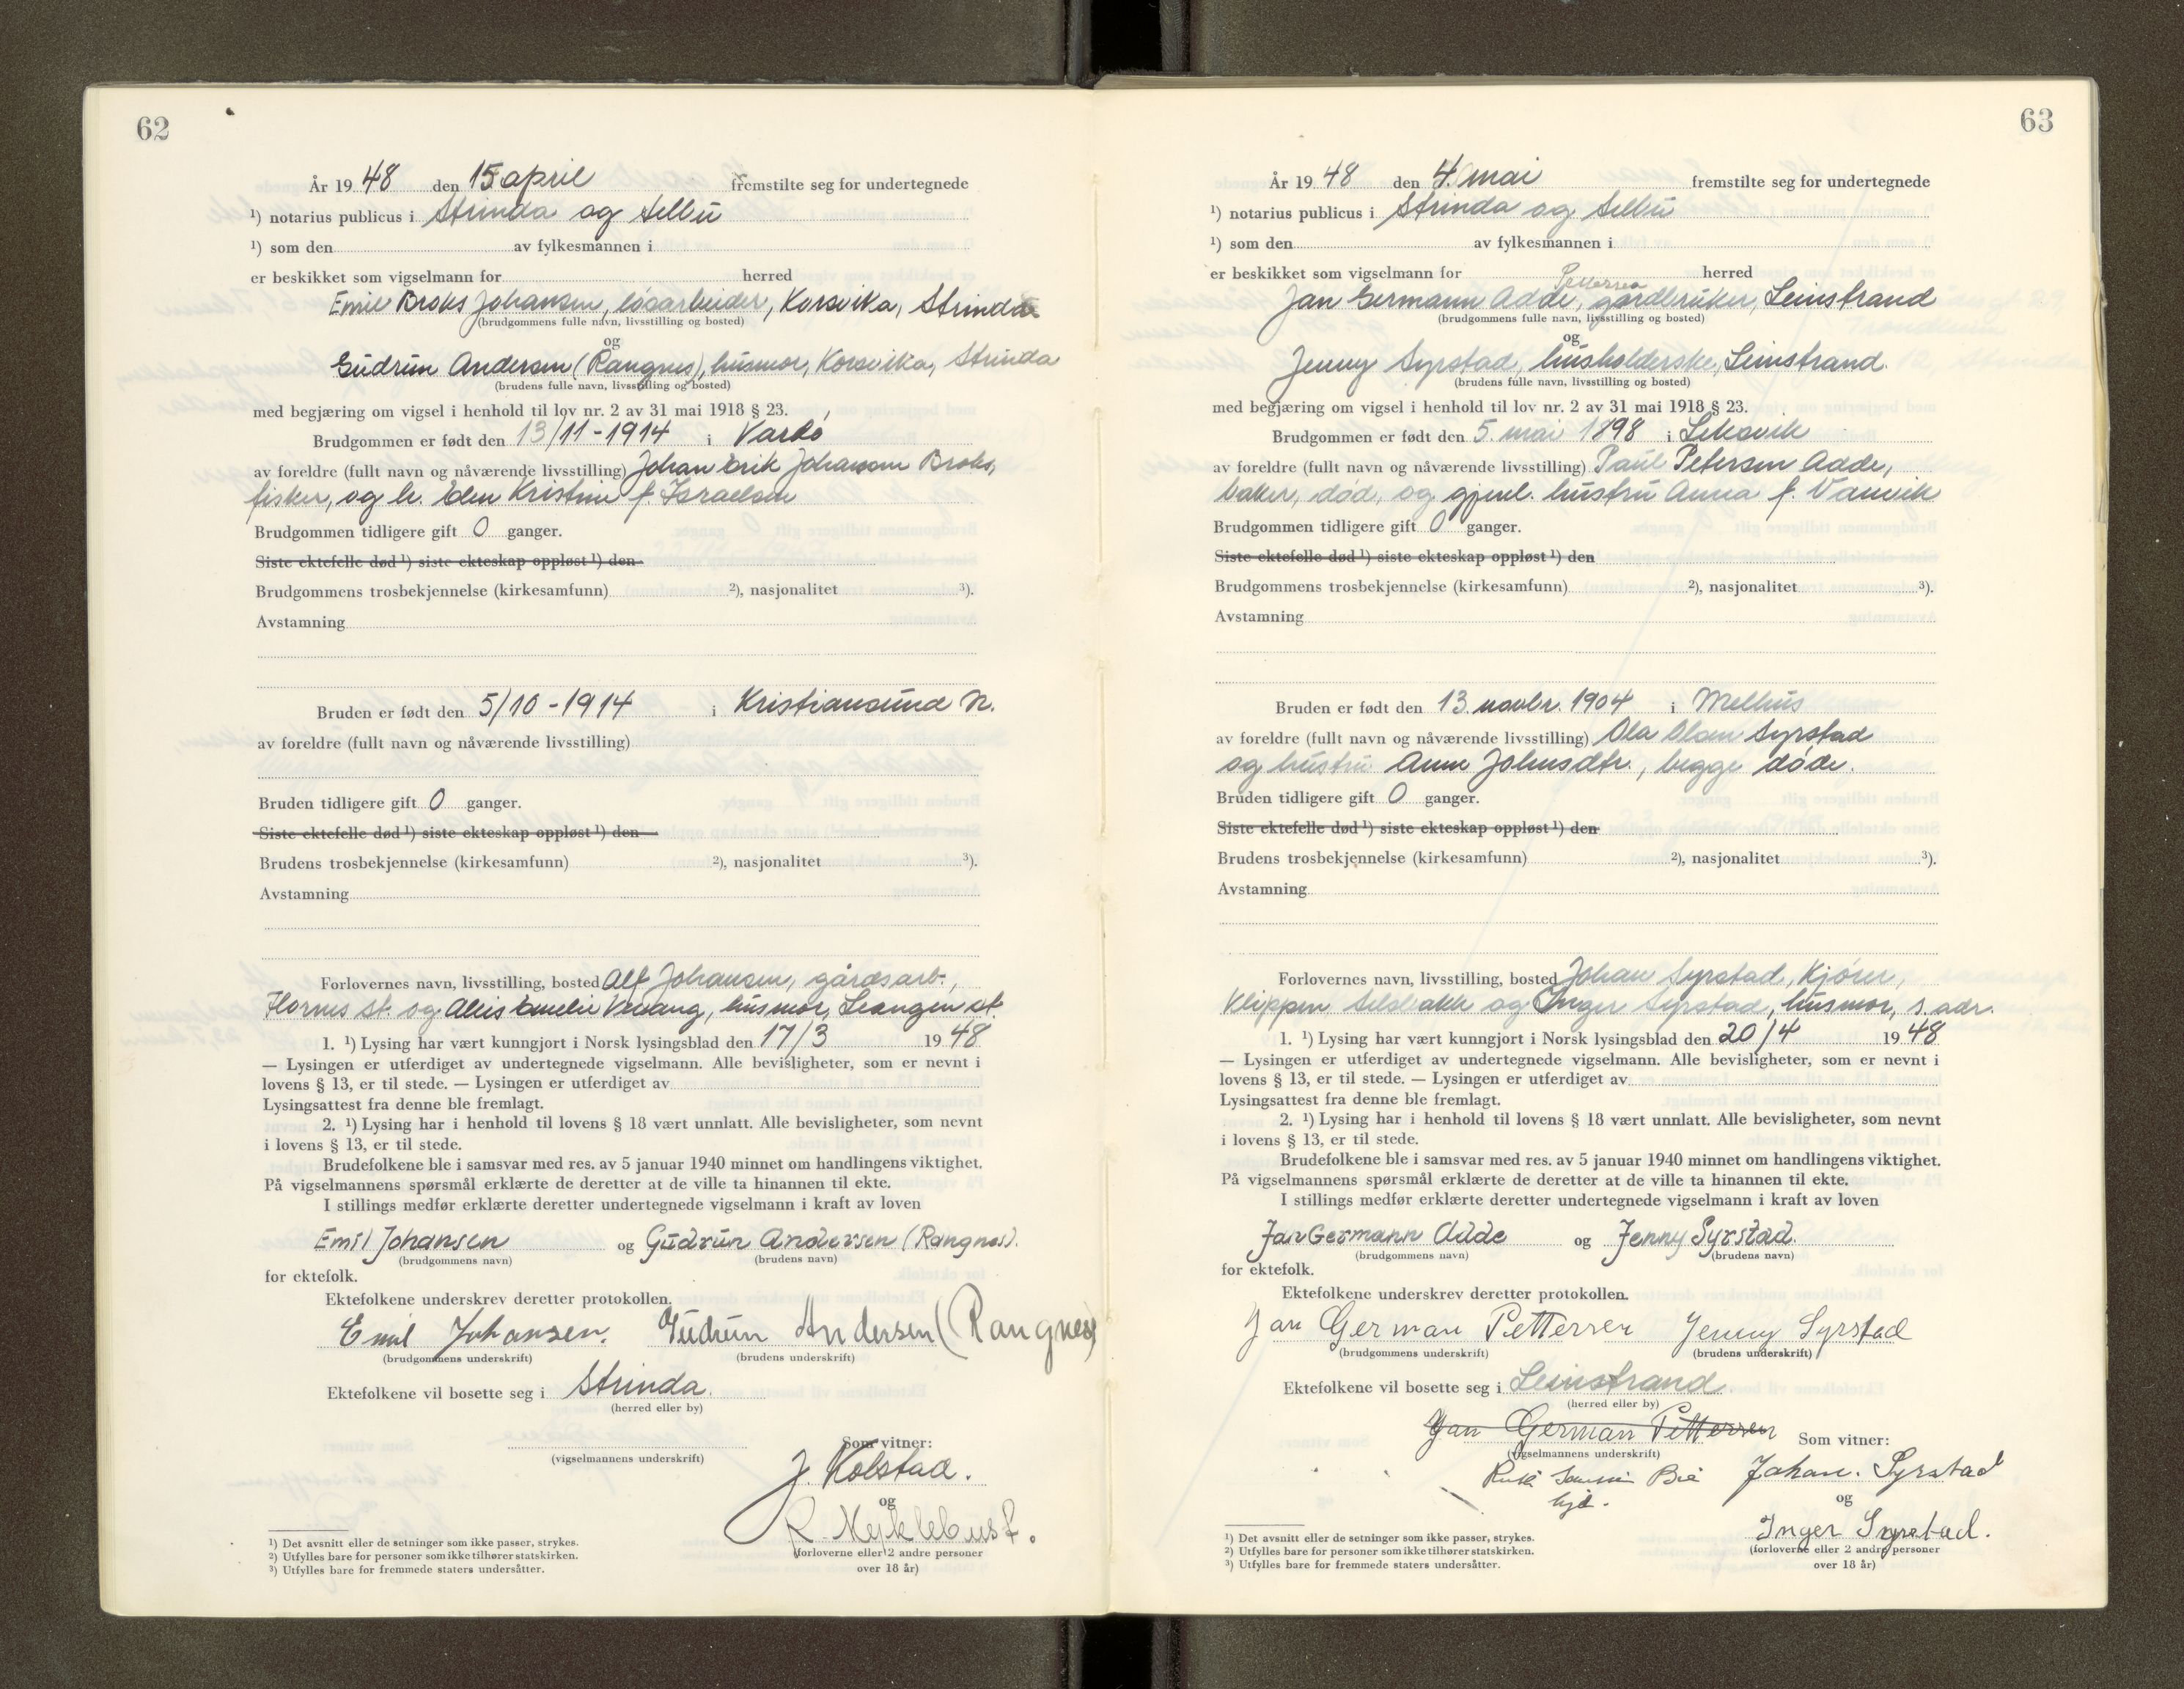 62
År 1948 den 15 april fremstilte seg for undertegnede
¹) notarius publicus i Strinda og Selbu
¹) som den av fylkesmannen i
er beskikket som vigselmann for herred
Emil Broks Johansen, løsarbeider, Korsvika, Strinda
(brudgommens fulle navn, livsstilling og bosted)
og
Gudrun Andersen (Rangnes), husmor, Korsvika, Strinda
(brudens fulle navn, livsstilling og bosted)
med begjæring om vigsel i henhold til lov nr. 2 av 31 mai 1918 § 23.
Brudgommen er født den 13/11-1914 i Vardø
av foreldre (fullt navn og nåværende livsstilling) Johan Erik Johansen Broks,
fisker, og h. Elen Kristine f. Israelsen
Brudgommen tidligere gift 0 ganger.
Siste ektefelle død ¹) siste ekteskap oppløst ¹) den
Brudgommens trosbekjennelse (kirkesamfunn) ²), nasjonalitet ³).
Avstamning
Bruden er født den 5/10-1914 i Kristiansund N.
av foreldre (fullt navn og nåværende livsstilling)
Bruden tidligere gift 0 ganger.
Siste ektefelle død ¹) siste ekteskap oppløst ¹) den
Brudens trosbekjennelse (kirkesamfunn) ²), nasjonalitet ³).
Avstamning
Forlovernes navn, livsstilling, bosted Alf Johansen, gårdsarb.,
st. og Emelie husmor, Leangen st.
1. ¹) Lysing har vært kunngjort i Norsk lysingsblad den 17/3 1948
— Lysingen er utferdiget av undertegnede vigselmann. Alle bevisligheter, som er nevnt i
lovens § 13, er til stede. — Lysingen er utferdiget av
Lysingsattest fra denne ble fremlagt.
2. ¹) Lysing har i henhold til lovens § 18 vært unnlatt. Alle bevisligheter, som nevnt
i lovens § 13, er til stede.
Brudefolkene ble i samsvar med res. av 5 januar 1940 minnet om handlingens viktighet.
På vigselmannens spørsmål erklærte de deretter at de ville ta hinannen til ekte.
I stillings medfør erklærte deretter undertegnede vigselmann i kraft av loven
Emil Johansen og Gudrun Andersen (Rangnes).
(brudgommens navn) (brudens navn)
for ektefolk.
Ektefolkene underskrev deretter protokollen.
Emil Johansen. Gudrun Andersen (Rangnes)
(brudgommens underskrift) (brudens underskrift)
Ektefolkene vil bosette seg i Strinda.
(herred eller by)
Som vitner:
(vigselmannens underskrift)
J. Kolstad.
og
R. Myklebust.
(forloverne eller 2 andre personer
over 18 år)
¹) Det avsnitt eller de setninger som ikke passer, strykes.
²) Utfylles bare for personer som ikke tilhører statskirken.
³) Utfylles bare for fremmede staters undersåtter.
63
År 1948 den 4. mai fremstilte seg for undertegnede
¹) notarius publicus i Strinda og Selbu
¹) som den av fylkesmannen i
er beskikket som vigselmann for herred
Pettersen
Jan Germann Adde, gårdbruker, Leinstrand
(brudgommens fulle navn, livsstilling og bosted)
og
Jenny Syrstad, husholderske, Leinstrand.
(brudens fulle navn, livsstilling og bosted)
med begjæring om vigsel i henhold til lov nr. 2 av 31 mai 1918 § 23.
Brudgommen er født den 5. mai 1898 i Leksvik
av foreldre (fullt navn og nåværende livsstilling) Paul Petersen Adde,
baker, død, og gjenl. hustru Anna f. Vanvik
Brudgommen tidligere gift 0 ganger.
Siste ektefelle død ¹) siste ekteskap oppløst ¹) den
Brudgommens trosbekjennelse (kirkesamfunn) ²), nasjonalitet ³).
Avstamning
Bruden er født den 13. novbr. 1904 i Melhus
av foreldre (fullt navn og nåværende livsstilling) Ola Olsen Syrstad
og hustru Anne Johnsdtr., begge døde.
Bruden tidligere gift 0 ganger.
Siste ektefelle død ¹) siste ekteskap oppløst ¹) den
Brudens trosbekjennelse (kirkesamfunn) ²), nasjonalitet ³).
Avstamning
Forlovernes navn, livsstilling, bosted Johan Syrstad, Kjører,
Klippen Selsbakk og Inger Syrstad, husmor, s. adr.
1. ¹) Lysing har vært kunngjort i Norsk lysingsblad den 20/4 1948
— Lysingen er utferdiget av undertegnede vigselmann. Alle bevisligheter, som er nevnt i
lovens § 13, er til stede. — Lysingen er utferdiget av
Lysingsattest fra denne ble fremlagt.
2. ¹) Lysing har i henhold til lovens § 18 vært unnlatt. Alle bevisligheter, som nevnt
i lovens § 13, er til stede.
Brudefolkene ble i samsvar med res. av 5 januar 1940 minnet om handlingens viktighet.
På vigselmannens spørsmål erklærte de deretter at de ville ta hinannen til ekte.
I stillings medfør erklærte deretter undertegnede vigselmann i kraft av loven
Jan Germann Adde og Jenny Syrstad.
(brudgommens navn) (brudens navn)
for ektefolk.
Ektefolkene underskrev deretter protokollen.
Jan German Petterren Jenny Syrstad
(brudgommens underskrift) (brudens underskrift)
Ektefolkene vil bosette seg i Leinstrand.
(herred eller by)
Jan German Petterren Som vitner:
(vigselmannens underskrift)
Johan. Syrstad
og
Inger Syrstad.
(forloverne eller 2 andre personer
over 18 år)
¹) Det avsnitt eller de setninger som ikke passer, strykes.
²) Utfylles bare for personer som ikke tilhører statskirken.
³) Utfylles bare for fremmede staters undersåtter.